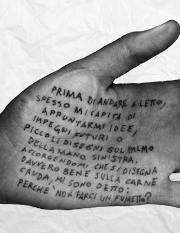 PRIMA DI ANDARE A LETTO,
SPESSO MI CAPITA DI
APPUNTARMI IDEE,
IMPEGNI FUTURI O
PICCOLI DISEGNI SUL PALMO
DELLA MANO SINISTRA.
ACCORGENDOMI CHE SI DISEGNA
DAVVERO BENE SULLA CARNE
CRUDA, MI SONO DETTO:
PERCHÉ NON FARCI UN FUMETTO?